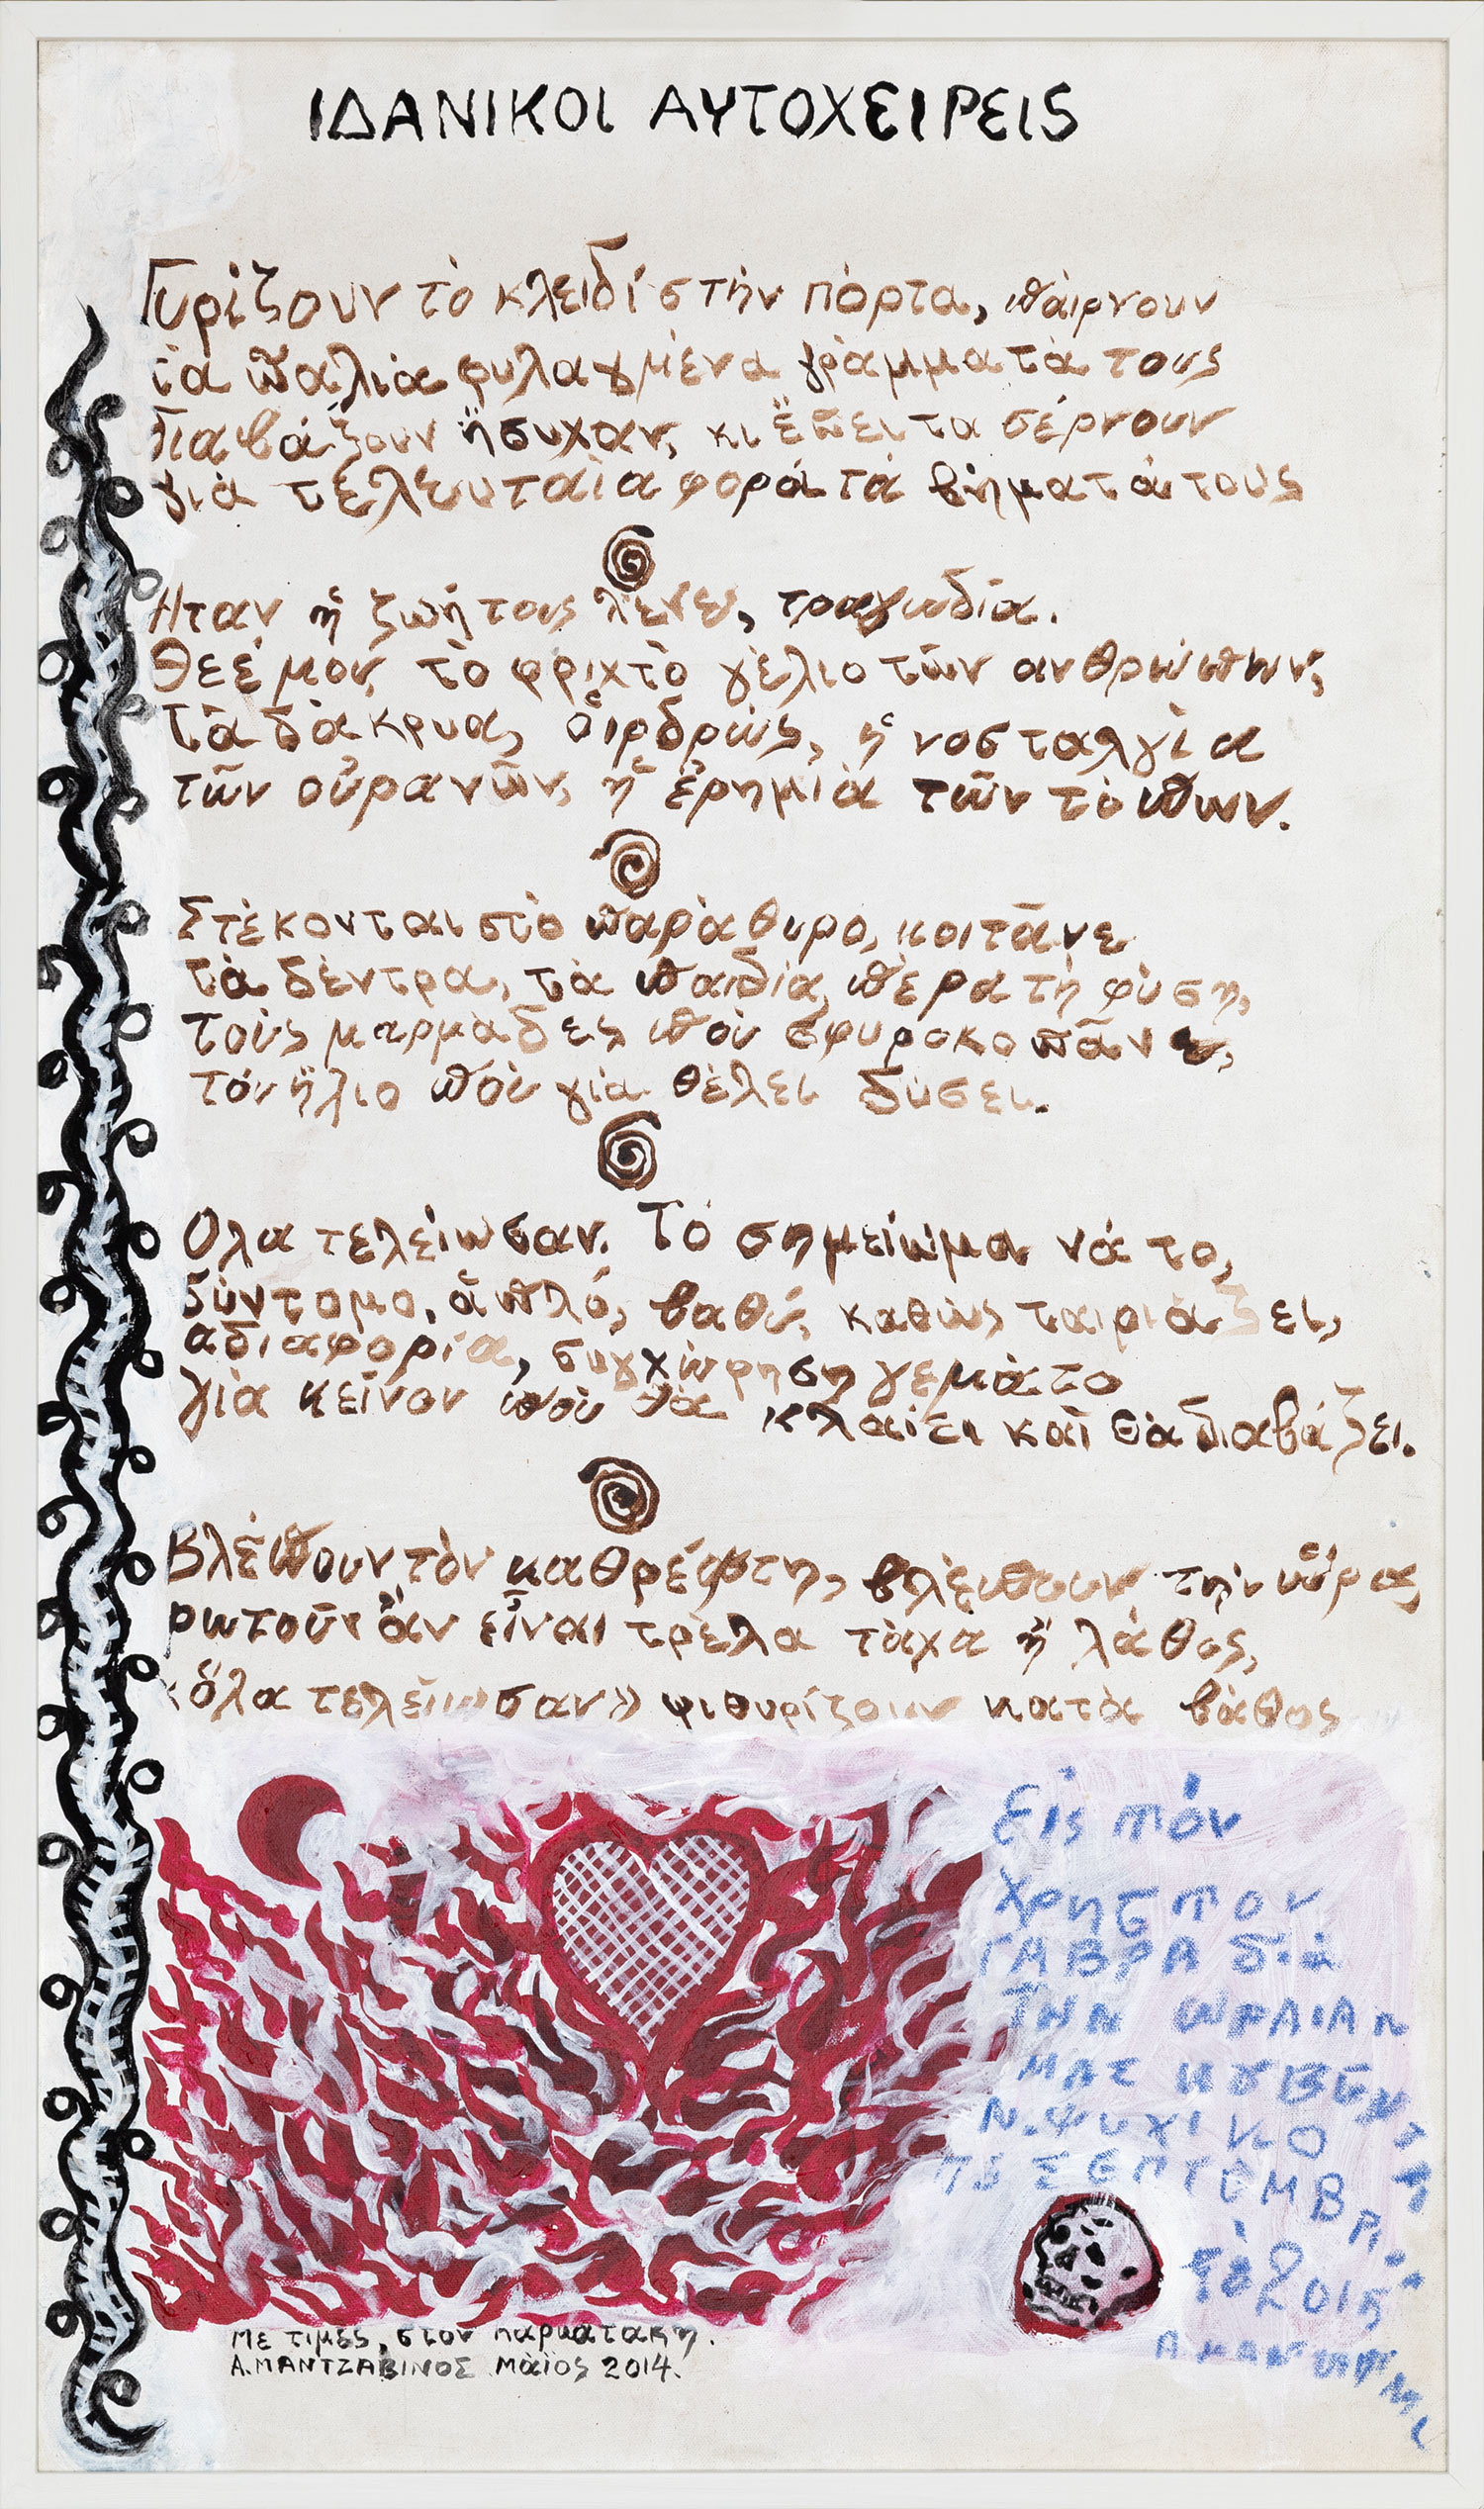 ΙΔΑΝΙΚΟΙ ΑΥΤΟΧΕΙΡΕΙΣ
Γυρίζουν τὸ κλειδί στὴν πόρτα, παίρνουν
τὰ παλιὰ φυλαγμένα γράμματὰ τους
διαβάζουν ἥσυχαν, κι ἔπειτα σέρνουν
γιὰ τελευταὶα φορά τὰ βήματὰ τους
Ηταν ἡ ζωή τους λένε, τραγωδία.
Θεέ μον, τὸ φριχτὸ γέλιο τῶν ανθρώπων,
Τὰ δάκρυα, ὁ ιρδρώς, ἡ νοσταλγία
τῶν οὐρανῶν, ἡ ἐρημιὰ τῶν τὸπων.
Στέκονται στὸ παρὰθυρο, κοιτᾶνε
τὰ δέντρα, τὰ παιδιά, πέρα τὴ φύση,
τοὺς μαρμάδες ποὺ σφυροκοπᾶνε,
τόν ἥλιο ποὺ γιὰ θέλει δύσει.
Ολα τελείωσαν. Τὸ σημείωμα νά το,
σύντομο, ἁπλό, βαθύ, καθὼς ταιριάζει,
αδιαφορία, συγχώρηση γεμάτο
γιὰ κεῖνον ποὺ θὰ κλαίει καὶ θὰ διαβάζει.
Βλέπουν τὸν καθρέφτη, βλέπουν τὴν ὥρα,
ρωτοῦν ἂν εἶναι τρὲλα τάχα ἢ λάθος,
«ὅλα τελείωσαν» ψιθυρίζουν κατὰ βάθος
Εἰς τὸν
Χρηστον
ΓΑΒΡΑ διὰ
ΤΗΝ ΠΑΛΙΑΝ
ΜΑΣ ΚΟΥΒΕΝ
Ν. ΨΥΧΙΚΟ
ΣΕΠΤΕΜΒΡ.
τὸ 2015
Με τιμές, στον Καρκατακη.
Α. ΜΑΝΤΖΑΒΙΝΟΣ Μάϊος 2014.